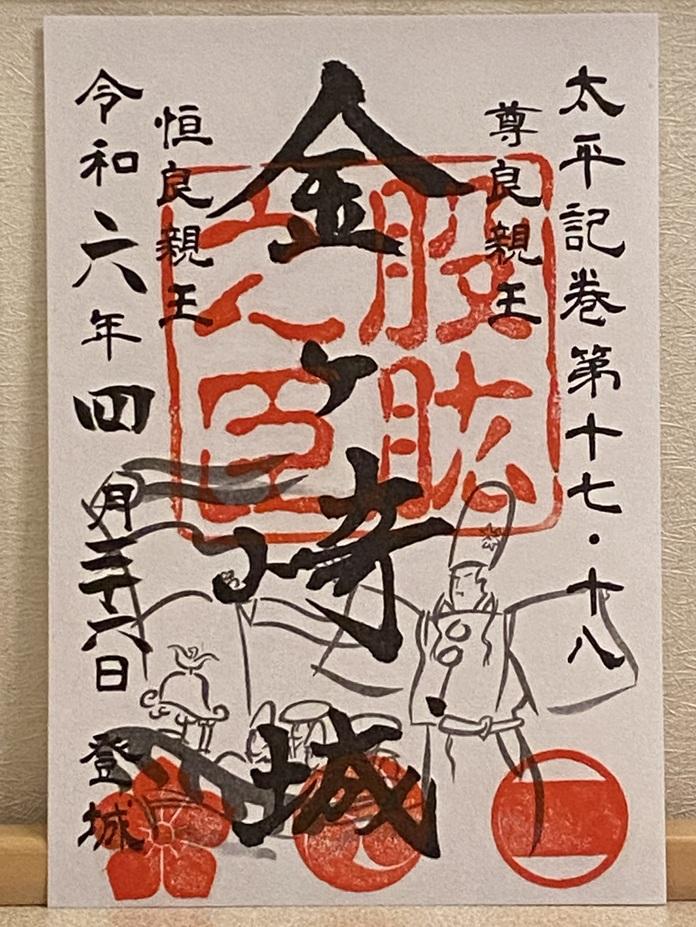 太平記巻第十七・十八
尊良親王
股肱之臣
金ヶ崎城
恒良親王
令和六年四月二十六日
登城